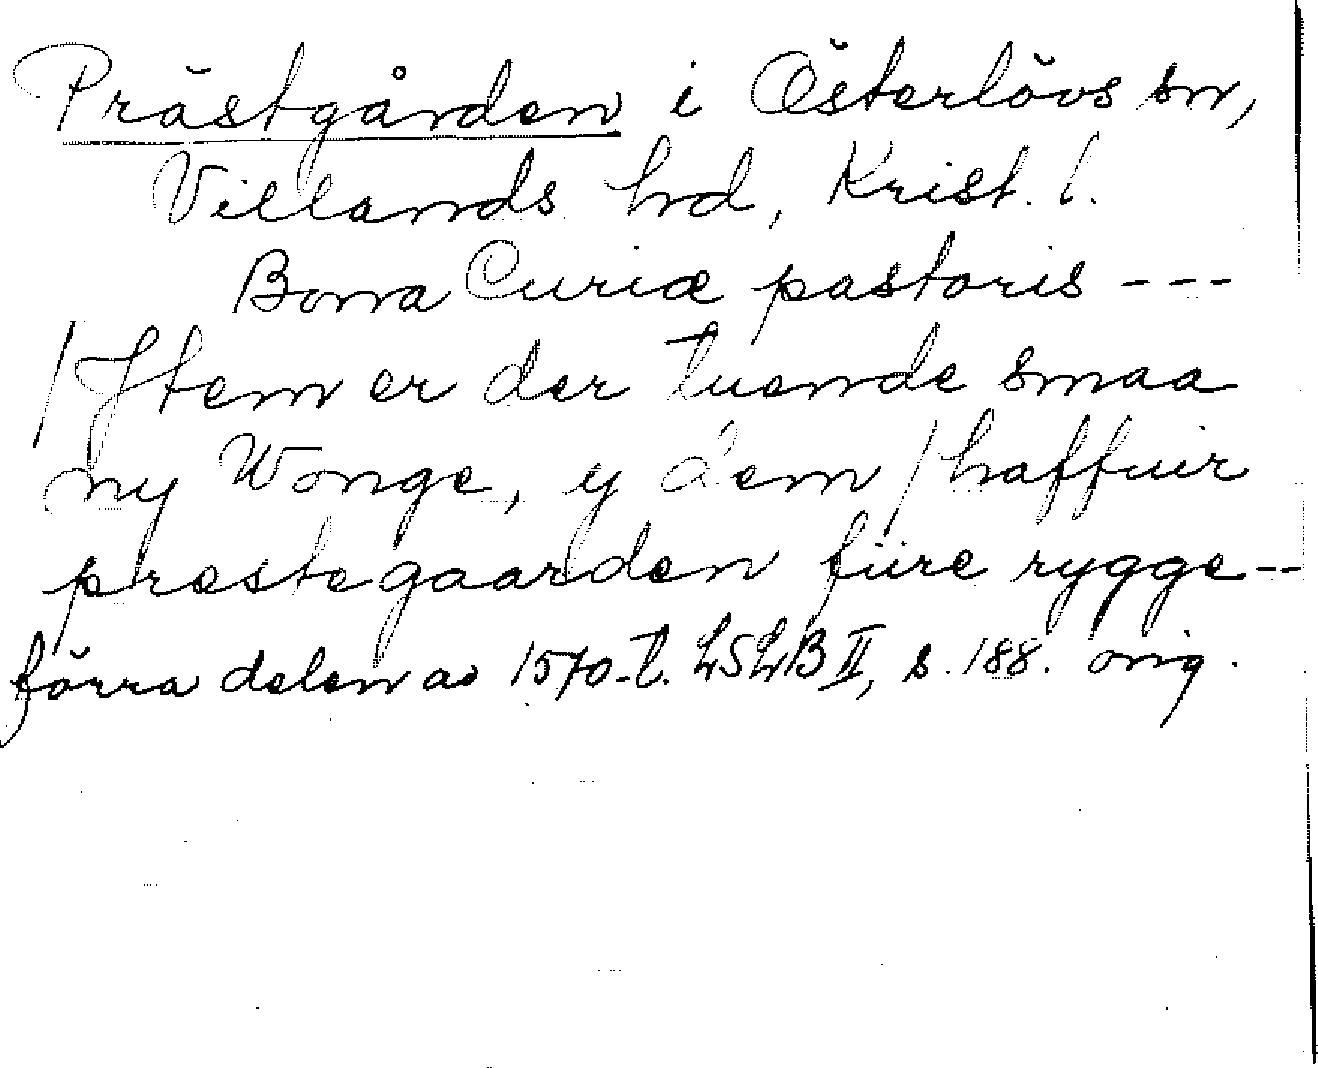 Prästgården i Österlövs sn,
Villands hd, Krist. l.
Bona Curiæ pastoris ---
/ Jtem er der tuende smaa
ny Wonge, y dem / haffuir
prestegaarden füre rygge--
förra delen av 1570-t. LSLB II, s. 188. orig.